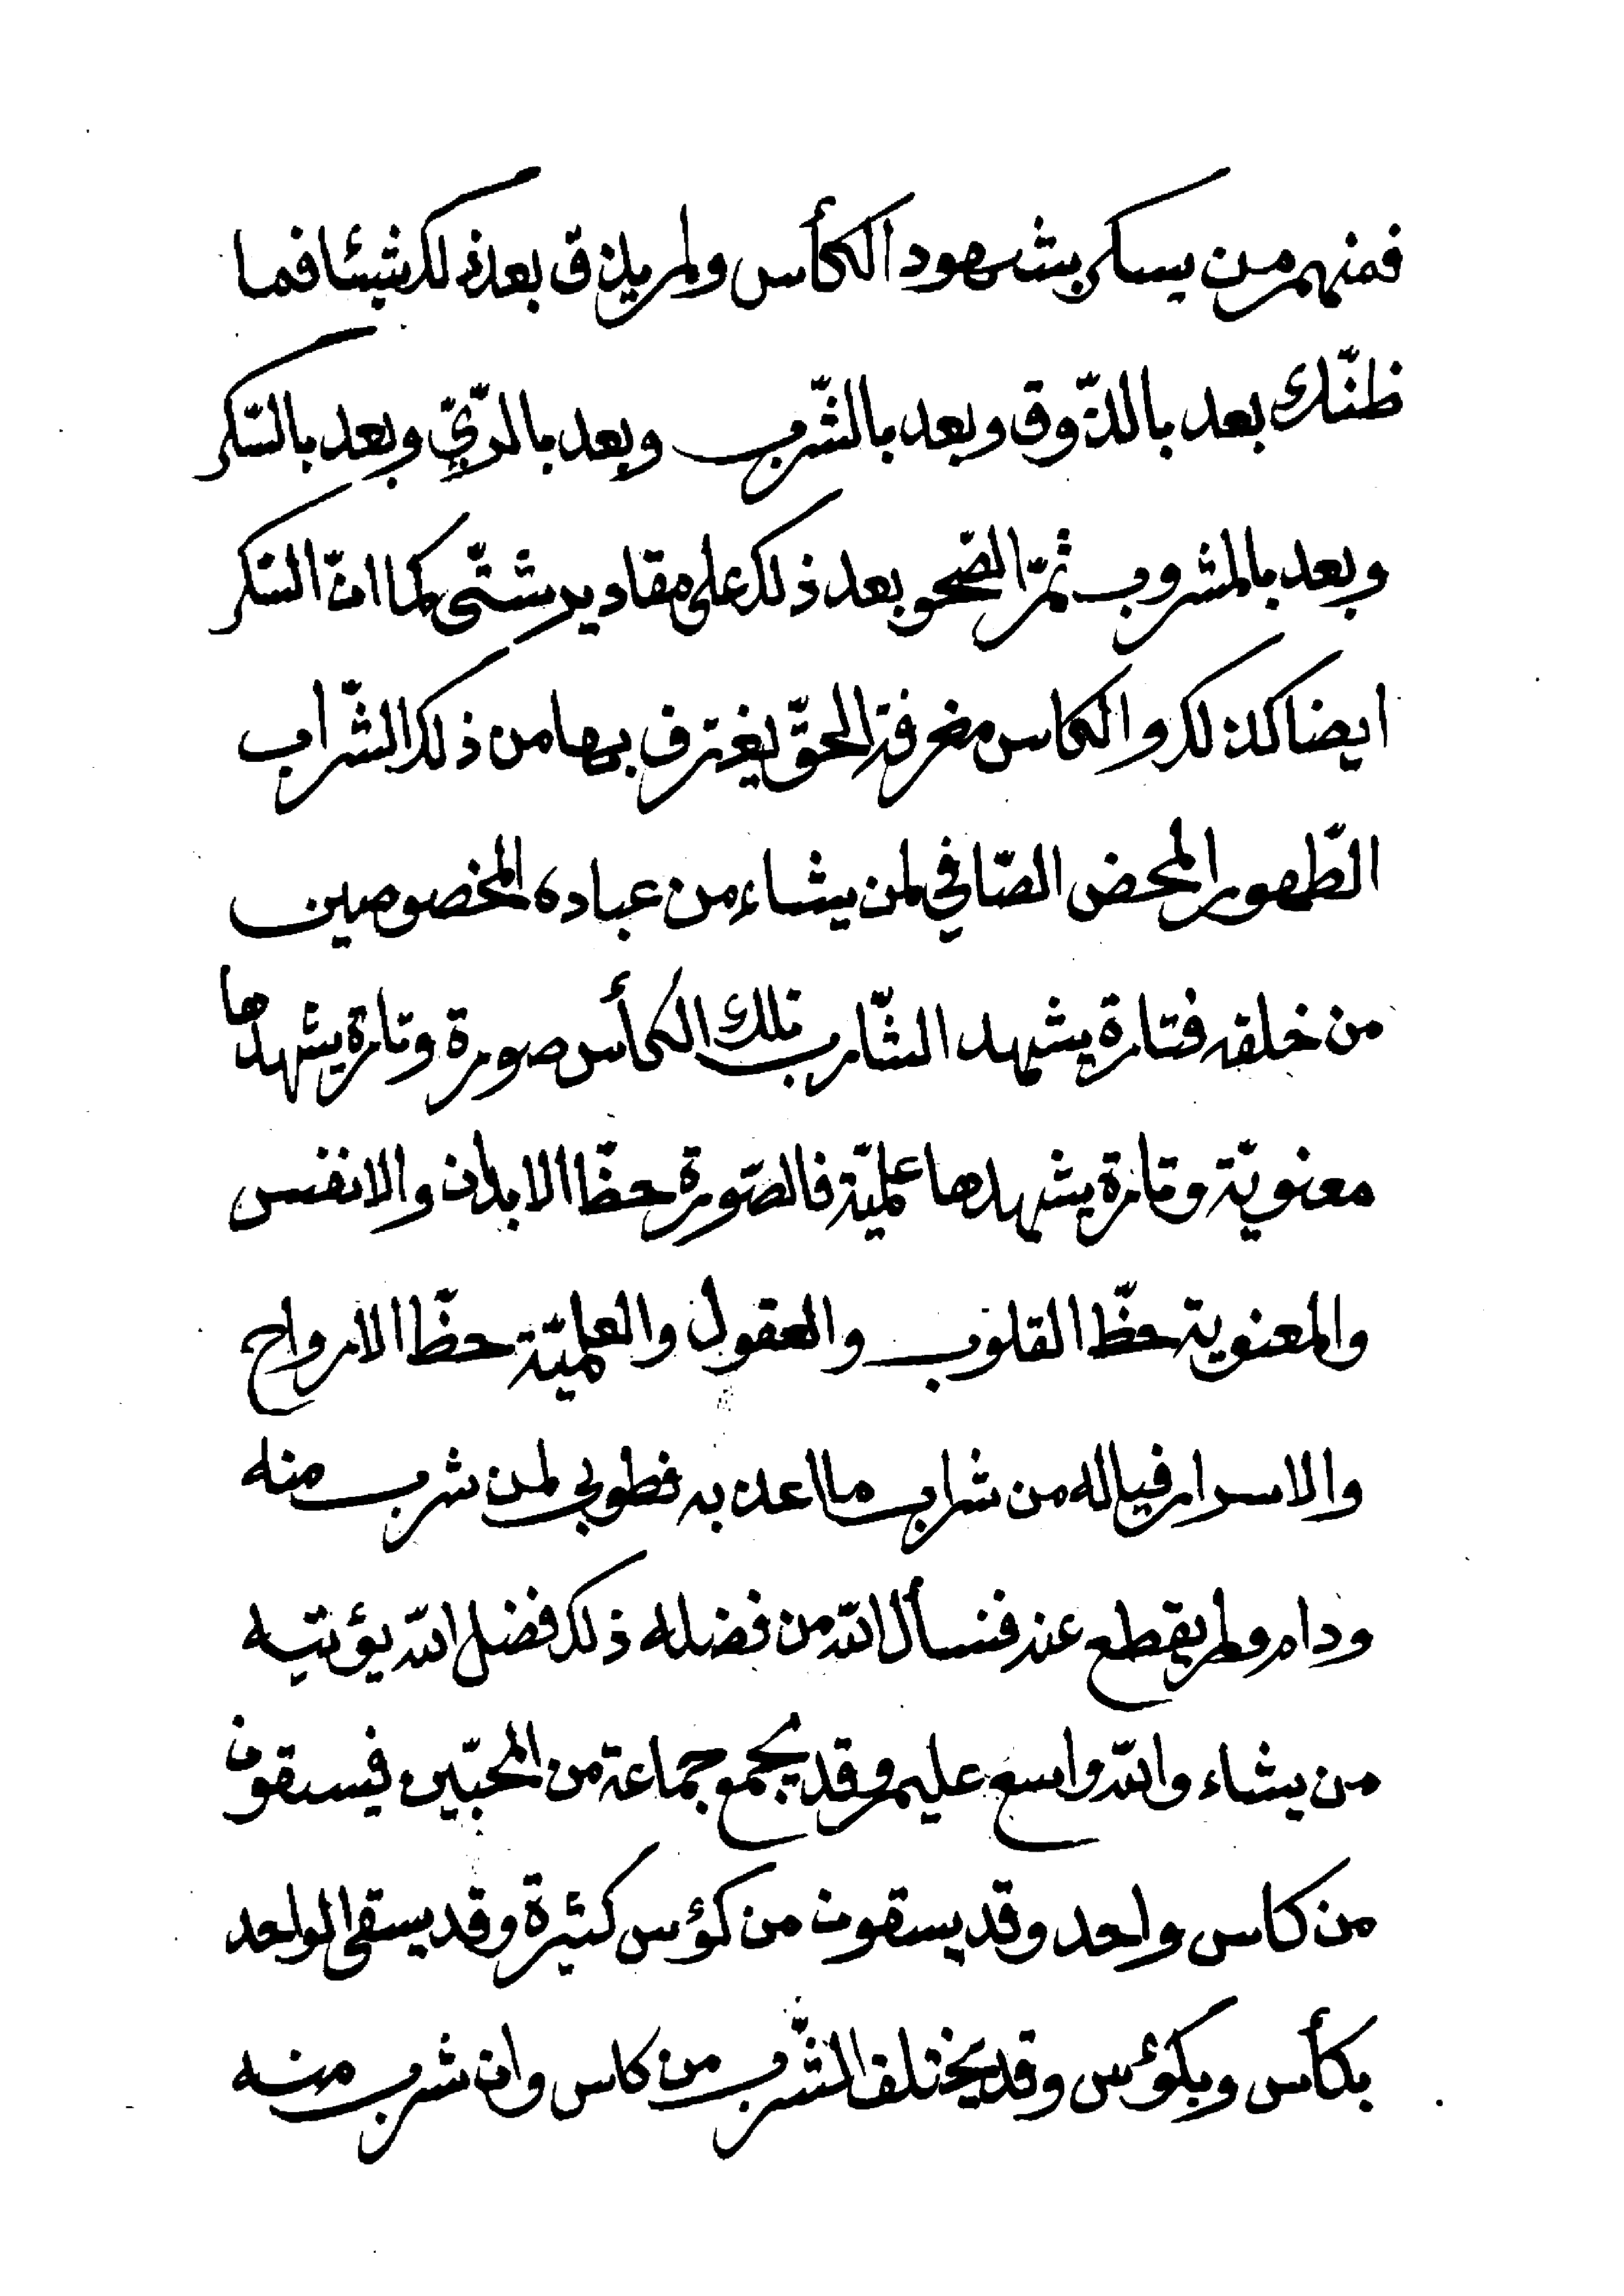 فمنهم من يسكر بشهود الكأس ولم يذق بعد ذلك شيئا فما
ظنّك بعد بالذّوق وبعد بالشّرب وبعد بالرّيّ وبعد بالسّكر
وبعد بالمشروب ثمّ الصّحو بعد ذلك على مقادير شتّى كما انّ السّكر
ايضا كذلك والكاس مغرفة الحقّ يغترف بها من ذلك الشّراب
الطّهور المحض الصّافي لمن يشاء من عباده المخصوصين
من خلقه فتارة يشهد الشّارب تلك الكأس صورة وتارة يشهدها
معنويّة وتارة يشهدها علميّة فالصّورة حظّ الابدان والانفس
والمعنوية حظّ القلوب والعقول والعلميّة حظّ الارواح
والاسرار فياله من شراب ما اعذبه فطوبى لمن شرب منه
ودام ولم يقطع عنه فنسأل الله من فضله ذلك فضل الله يؤتيه
من يشاء والله واسع عليم وقد يجمع جماعة من المحبّين فيسقون
من كاس واحد وقد يسقون من كؤس كثيرة وقد يسقى الواحد
بكأس وبكؤس وقد يختلف الشّرب من كاس وان شرب منه